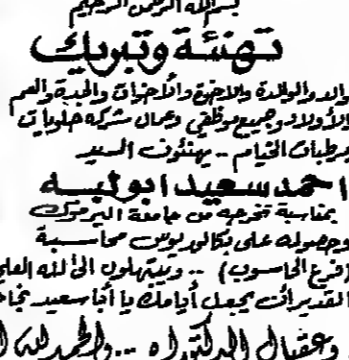 بسم الله الرحمن الرحيم
تهنئة وتبريك
والد والوالدة والاخوة والأخوات والجدة والعم
والأولاد وجميع موظفي وعمال شركة حلويات
ومرطبات الخيام .. يهنئون السيد
احمد سعيد ابو لبه
بمناسبة تخرجه من جامعة اليرموك
وحصوله على بكالوريوس محاسبة
(فرع الحاسوب) .. ويبتهلون الى الله العلي
القدير ان يجعل أيامك يا أبا سعيد نجاح
وعقبال الدكتوراه ... والحمد لله